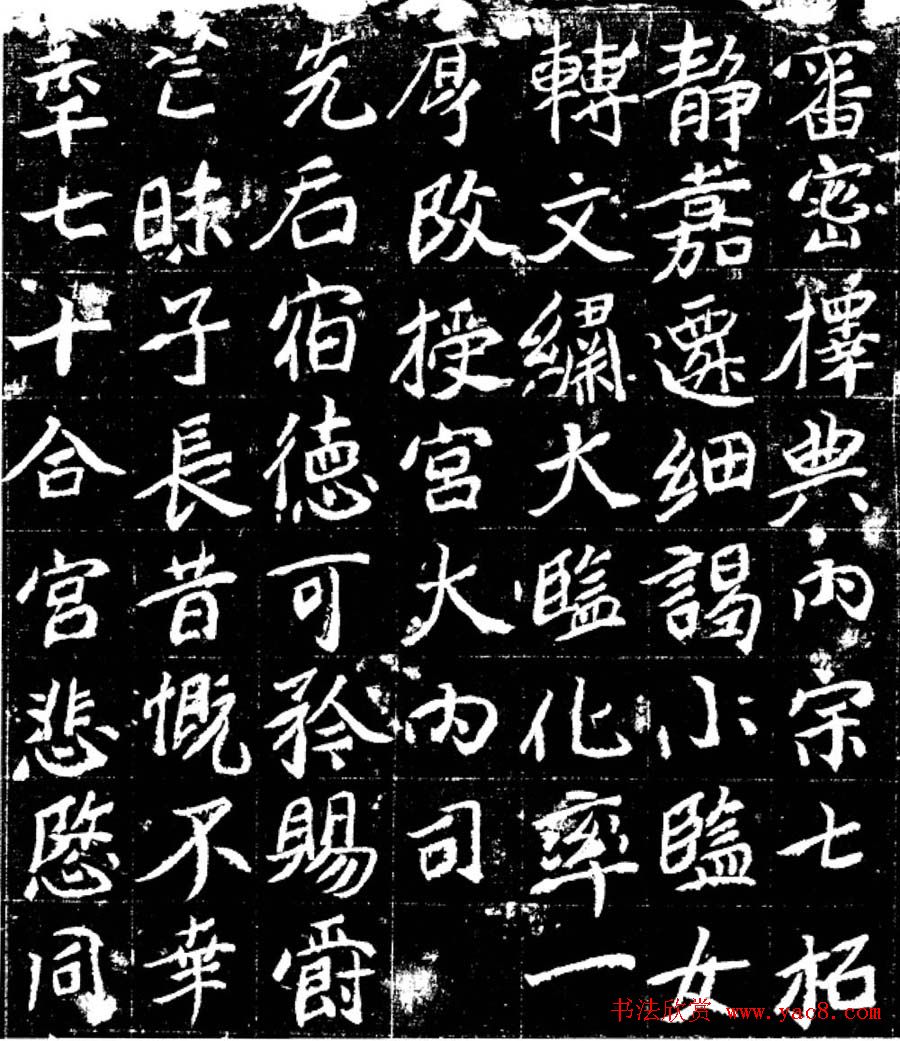 審密擇典內宗七祏
靜嘉遷細謁小監女
轉文繡大監化率一
厚改授宮大內司
先后宿德可矜賜爵
芒昧子長昔慨不幸
年七十合宮悲愍同
书法欣赏 www.yac8.com